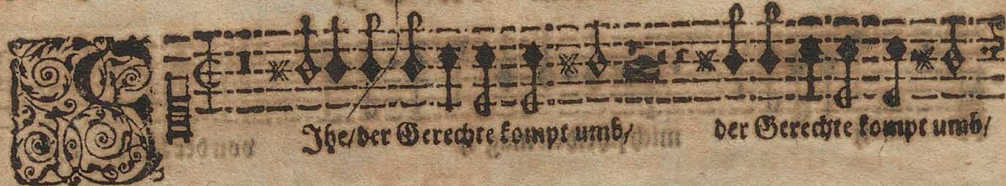 SIhe/der Gerechte kompt umb/ der Gerechte kompt umb/